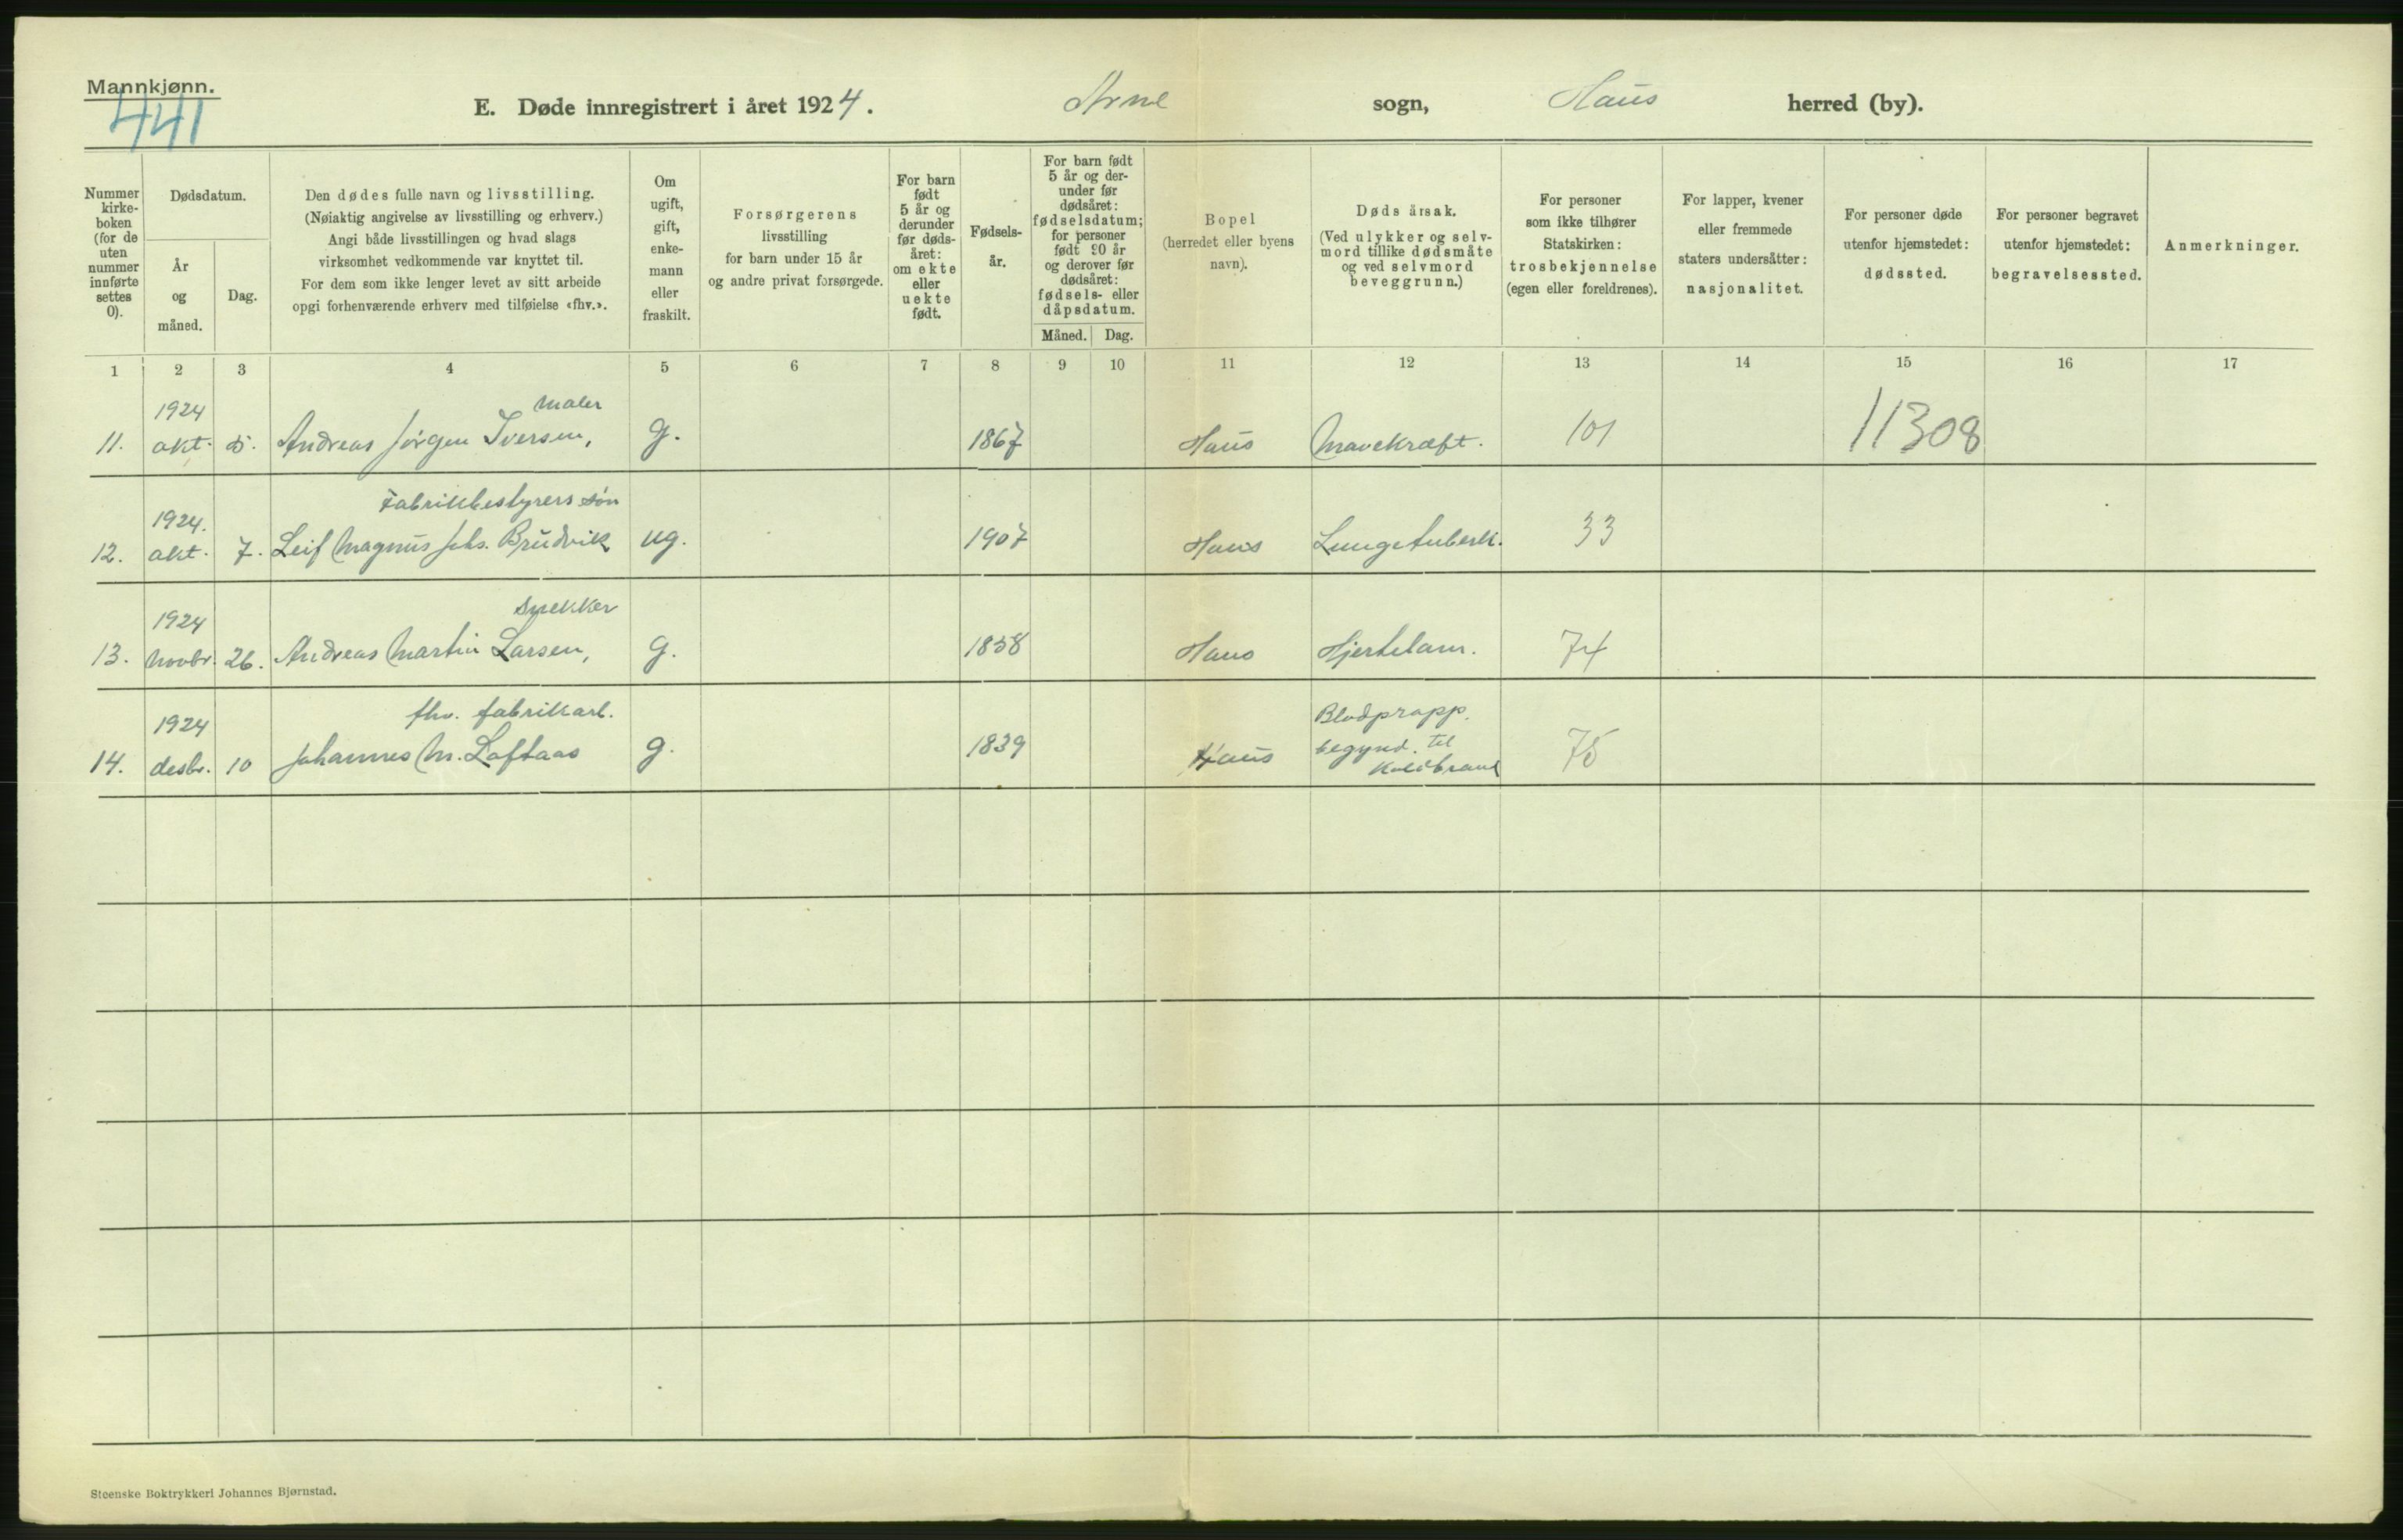 Mannkjønn.
441
E. Døde innregistrert i året 1924. Arne sogn, Haus herred (by).
Nummer kirke-boken (for de uten nummer innførte settes 0).
Dødsdatum.
År og måned.
Dag.
Den dødes fulle navn og livsstilling.
(Nøiaktig angivelse av livsstilling og erhverv.)
Angi både livsstillingen og hvad slags
virksomhet vedkommende var knyttet til.
For dem som ikke lenger levet av sitt arbeide
opgi forhenværende erhverv med tilføielse «fhv.».
Om ugift, gift, enke-mann eller fraskilt.
Forsørgerens
livsstilling
for barn under 15 år
og andre privat forsørgede.
For barn født 5 år og derunder før døds-året: om ekte eller uekte født.
Fødsels-år.
For barn født 5 år og der-under før dødsåret: fødselsdatum; for personer født 90 år og derover før dødsåret: fødsels- eller dåpsdatum.
Måned. Dag.
Bopel
(herredet eller byens
navn).
Døds årsak.
(Ved ulykker og selv-
mord tillike dødsmåte
og ved selvmord
beveggrunn.)
For personer
som ikke tilhører
Statskirken:
trosbekjennelse
(egen eller foreldrenes).
For lapper, kvener
eller fremmede
staters undersåtter:
nasjonalitet.
For personer døde
utenfor hjemstedet:
dødssted.
For personer begravet
utenfor hjemstedet:
begravelsessted.
Anmerkninger.
1 2 3 4 5 6 7 8 9 10 11 12 13 14 15 16 17
1924 maler
11. okt. 5. Andreas Jørgen Iversen, g. 1867 Haus Mavekræft. 101 11308
1924. Fabrikbestyrers søn
12. okt. 7. Leif Magnus Johs. Brudvik ug. 1907 Haus Lungetuberk. 33
1924 snekker
13. novbr. 26. Andreas Martin Larsen, g. 1858 Haus Hjertelam. 74
1924 fhv. fabrikarb. Blodpropp,
14. desbr. 10 Johannes M. Loftaas g. 1839 Haus begynd. til 75
Koldbrand
Steenske Boktrykkeri Johannes Bjørnstad.